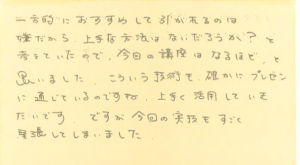 一方的におすすめして引かれるのは
嫌だから、上手な方法はないだろうか?と
考えていたので、今回の講座はなるほど、と
思いました。こういう技術も、確かにプレゼン
に通じているのですね。上手く活用していき
たいです。ですが今回の実技もすごく
緊張してしまいました。